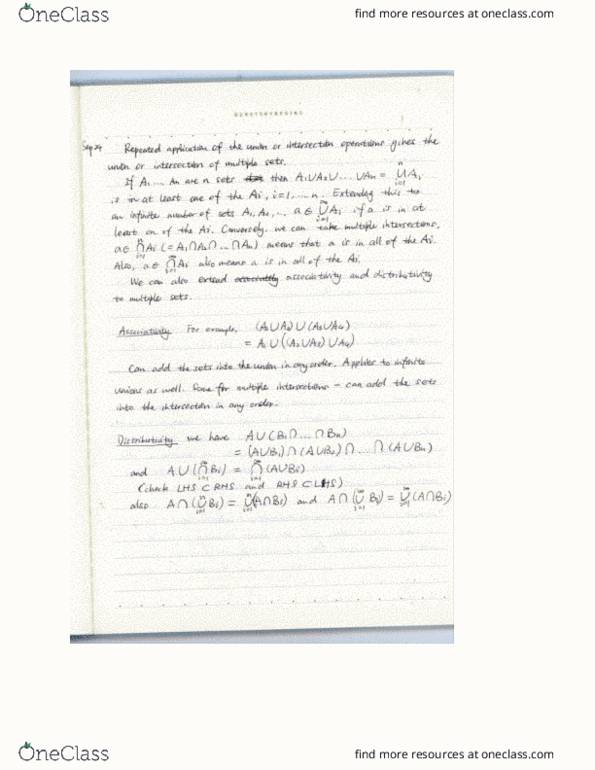 OneClass
find more resources at oneclass.com
Sep 24 Repeated application of the union or intersection operations gives the
union or intersection of multiple sets.
If A₁ .... Aₙ are n sets then A₁∪A₂∪ .... ∪Aₙ = ⋃ⁿᵢ₌₁ Aᵢ
is in at least one of the Aᵢ, i=1, .... n. Extending this to
an infinite number of sets A₁, A₂, ... a ∈ ⋃^∞ᵢ₌₁ Aᵢ if a is in at
least on of the Aᵢ. Conversely, we can take multiple intersections,
a ∈ ⋂ⁿᵢ₌₁ Aᵢ (= A₁∩A₂∩ ... ∩Aₙ) means that a is in all of the Aᵢ.
Also, a ∈ ⋂^∞ᵢ₌₁ Aᵢ also means a is in all of the Aᵢ.
We can also extend associativity and distributivity
to multiple sets.
Associativity For example, (A₁∪A₂)∪(A₃∪A₄)
= A₁∪((A₂∪A₃)∪A₄)
Can add the sets into the union in any order. Applies to infinite
unions as well. Same for multiple intersections – can add the sets
into the intersection in any order.
Distributivity we have A∪(B₁∩ .... ∩Bₙ)
= (A∪B₁)∩(A∪B₂)∩ ... ∩(A∪Bₙ)
and A∪(⋂^∞ᵢ₌₁ Bᵢ) = ⋂^∞ᵢ₌₁ (A∪Bᵢ)
(check LHS ⊂ RHS and RHS ⊂ LHS)
also A∩(⋃ⁿᵢ₌₁ Bᵢ) = ⋃ⁿᵢ₌₁(A∩Bᵢ) and A∩(⋃^∞ᵢ₌₁ Bᵢ) = ⋃^∞ᵢ₌₁(A∩Bᵢ)
OneClass
find more resources at oneclass.com